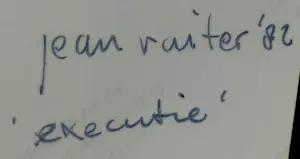 jean ruiter '82
'executie'